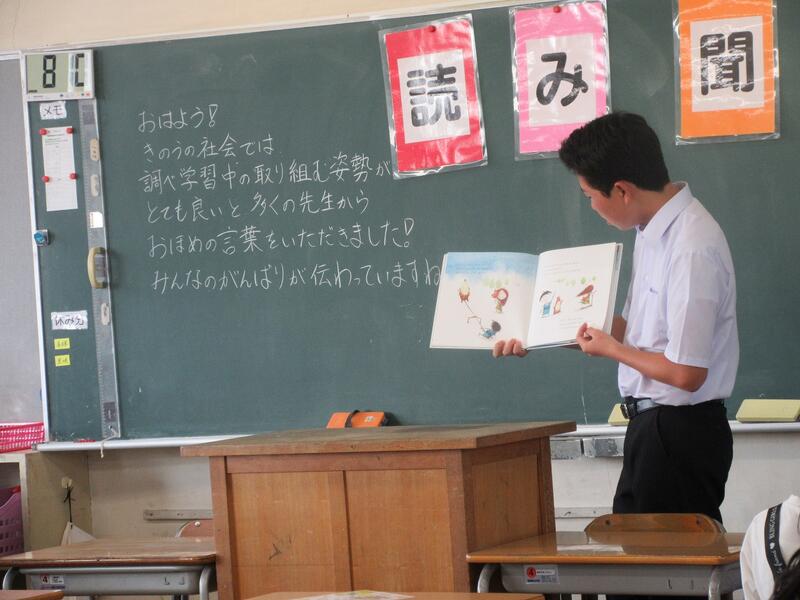 読み聞
8
メモ
おはよう!
きのうの社会では
調べ学習中の取り組む姿勢が
とても良いと多くの先生から
おほめの言葉をいただきました!
みんなのがんばりが伝わっていますね
休み先
4
4